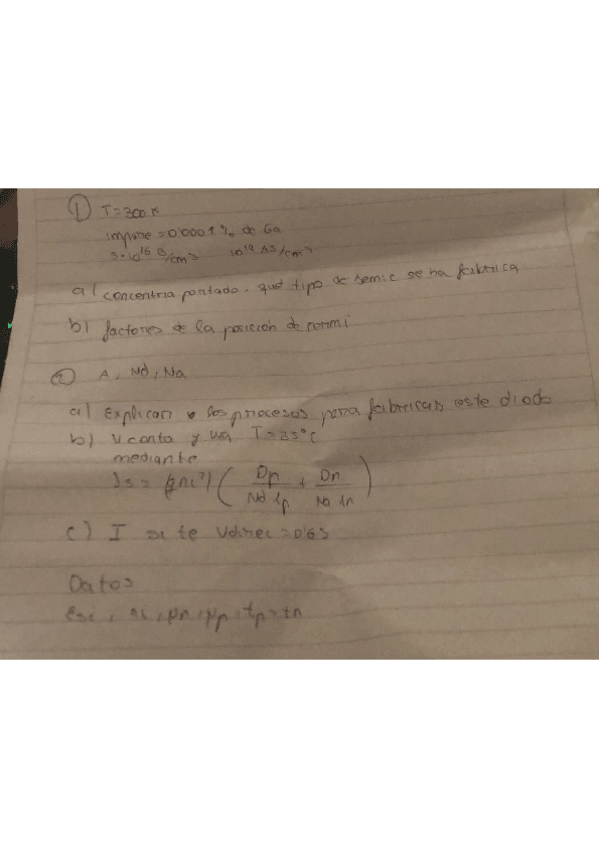 ① T=300 K
impure = 0'0001 % de Ga
5·10¹⁶ B/cm³ 10¹⁹ As/cm³
a) concentria portado. qué tipo de semic se ha fabrica
b) factores de la posición de Fermi
② A, Nd, Na
a) Explican los procesos para fabrican este diodo
b) V conta y T=25°C
mediante
Js = (qni²) ( Dp/Nd Lp + Dn/Na Ln )
c) I si te Vdirec = 0'65
Datos
ni, μn, μp, tp = tn